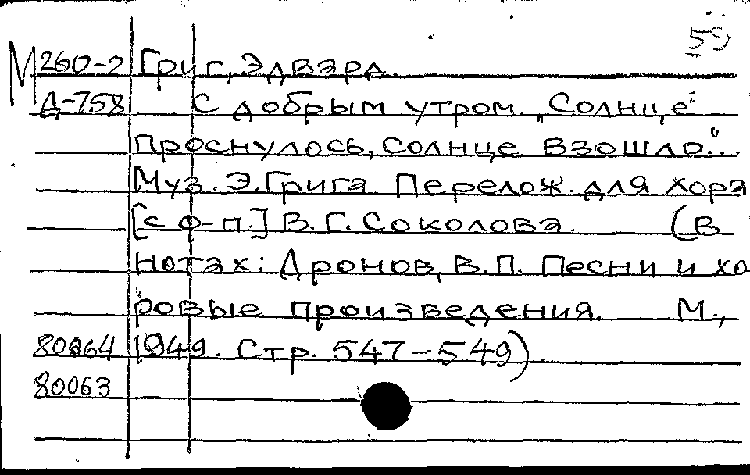 55
М 260-2 Григ, Эдвард.
Д-758 С добрым утром. „Солнце
проснулось, солнце взошло..."
Муз. Э. Грига. Перелож. для хора
[с ф-п.] В. Г. Соколова (В
нотах: Дронов, В.П. Песни и хо
ровые произведения. М.,
80064 1949. Стр. 547-549).
80063